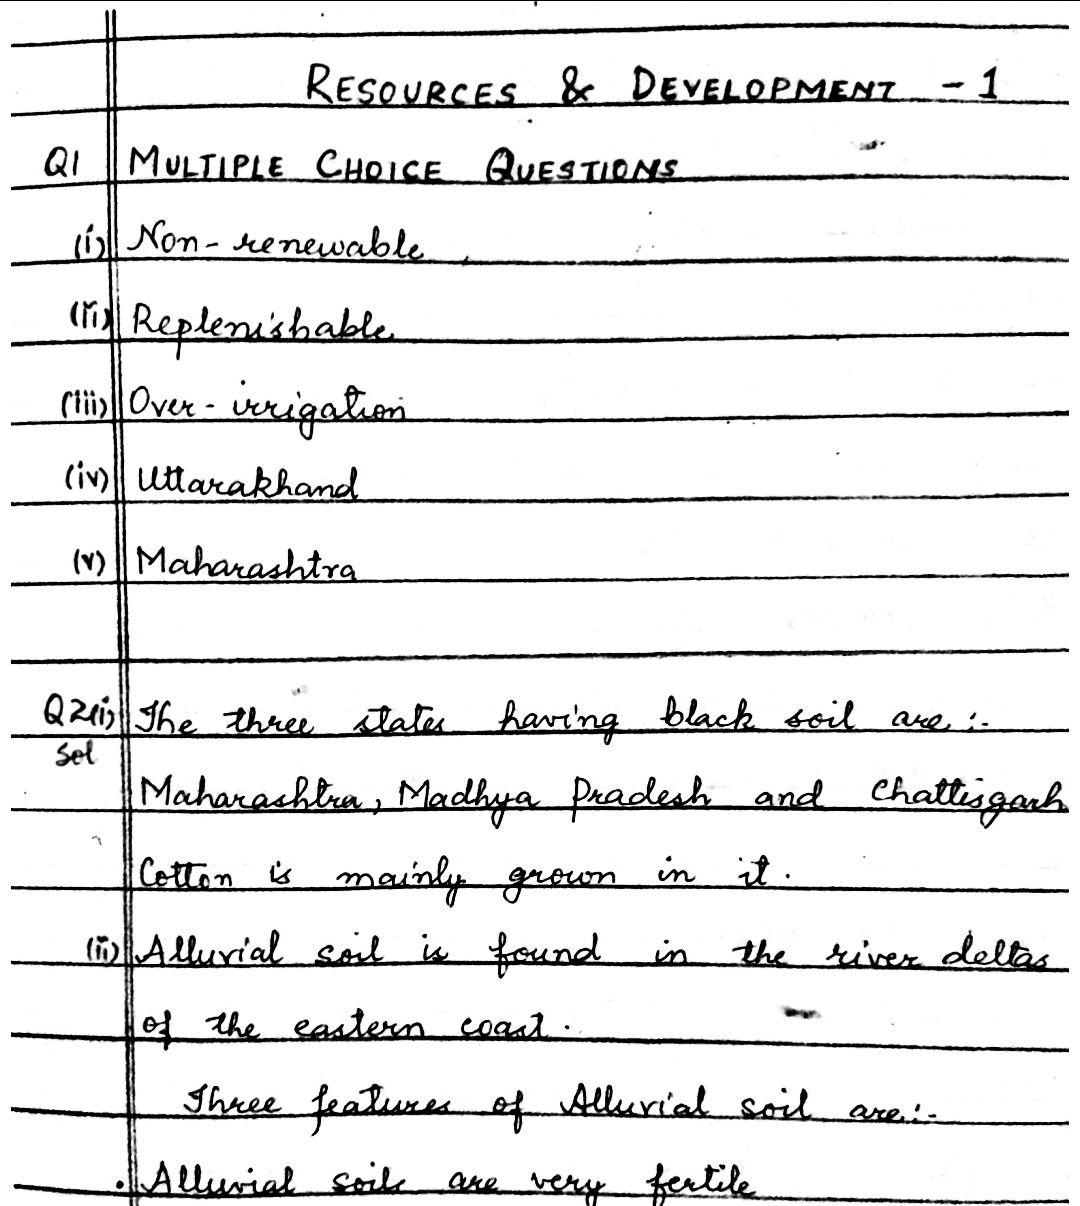 RESOURCES & DEVELOPMENT - 1
Q1 MULTIPLE CHOICE QUESTIONS
(i) Non-renewable
(ii) Replenishable
(iii) Over-irrigation
(iv) Uttarakhand
(v) Maharashtra
Q2(i) The three states having black soil are :-
Sol
Maharashtra, Madhya Pradesh and Chattisgarh
Cotton is mainly grown in it.
(ii) Alluvial soil is found in the river deltas
of the eastern coast.
Three features of Alluvial soil are :-
• Alluvial soils are very fertile